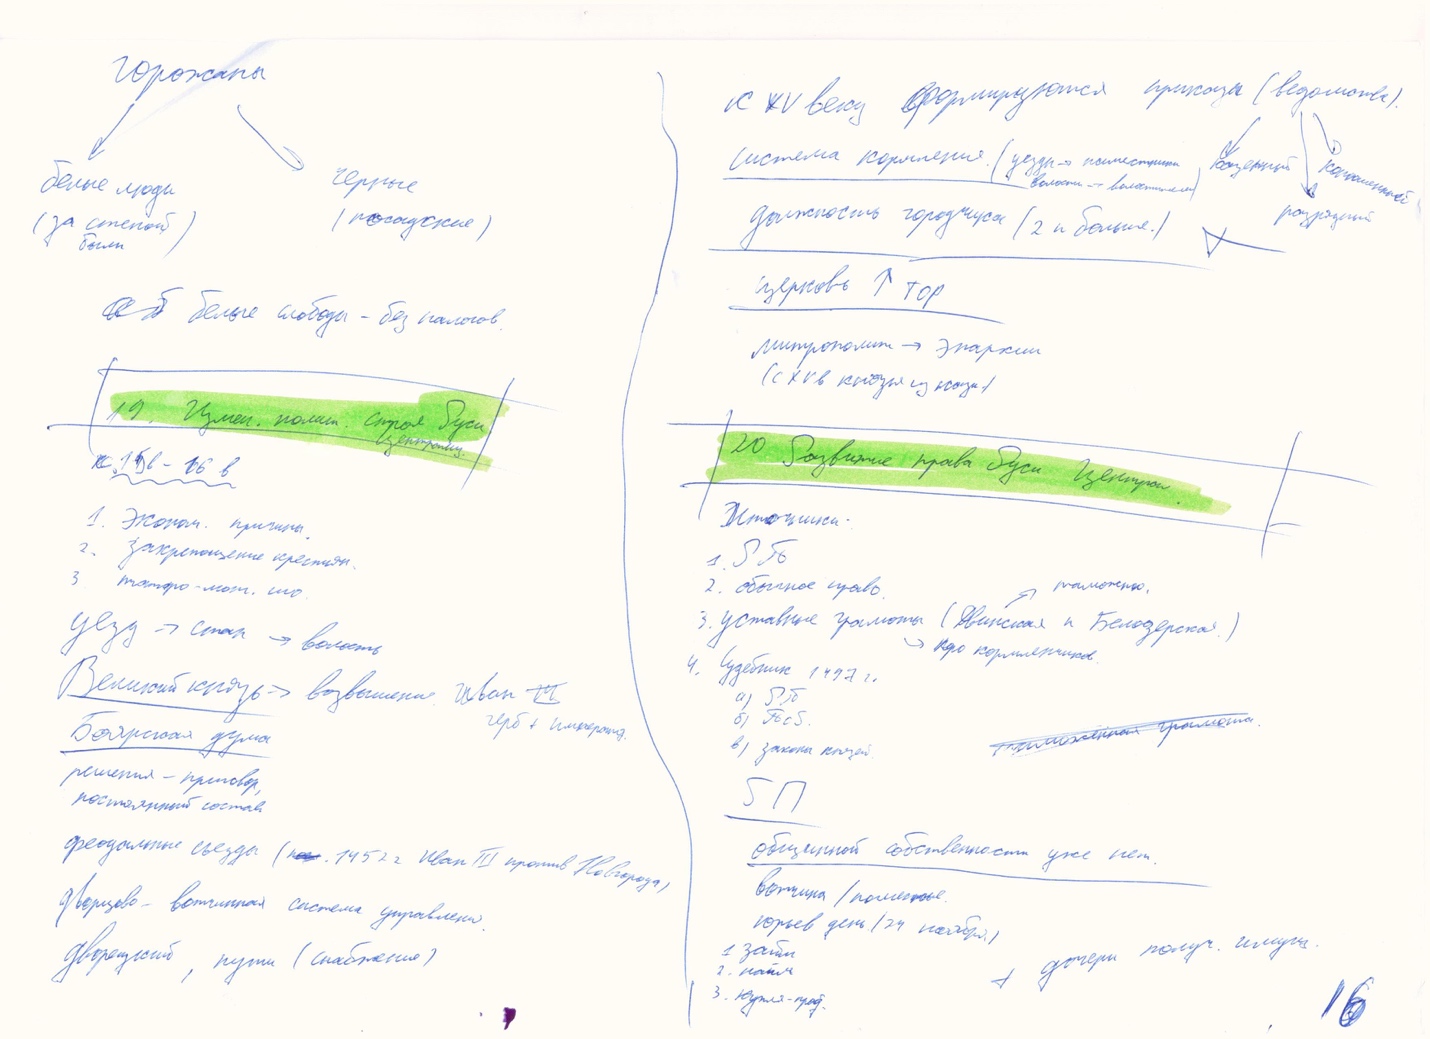 горожане
белые люди
(за стеной были)
черные
(посадские)
белые слободы - без налогов.
19. Измен. полит. строя Руси
централиз.
к. 15в - 16 в
1. Эконом. причины.
2. Закрепощение крестьян.
3
уезд → стан → волость
Великий князь → возвышение. Иван III
герб +
Боярская дума
решения - приговор,
постоянный состав
феодальные съезды ( 1452 г Иван III против Новгорода)
дворцово-вотчинная система управлени.
дворецкий, пути (снабжение)
к XV веку формируются приказы (ведомства).
казенный
разрядный
система кормления. (уезды → наместники
волости → волостели)
должность городчика (2 и больше.)
церковь ↑ ТОР
митрополит → Эпархии
(с XV в князья из казны)
20 Развитие права Руси централ.
Источники.
1. РПр
2. обычное право.
таможены.
3. уставные грамоты (Двинская и Белозерская.)
→ про кормленчиков.
4. Судебник 1497 г.
а)
б)
в) законы князей.
таможенная грамота.
общинной собственности уже нет.
вотчина / поместье.
юрьев день (24 ноября)
1 займ
2. найм
3. купля-прод.
+ дочери получ. имущ.
16